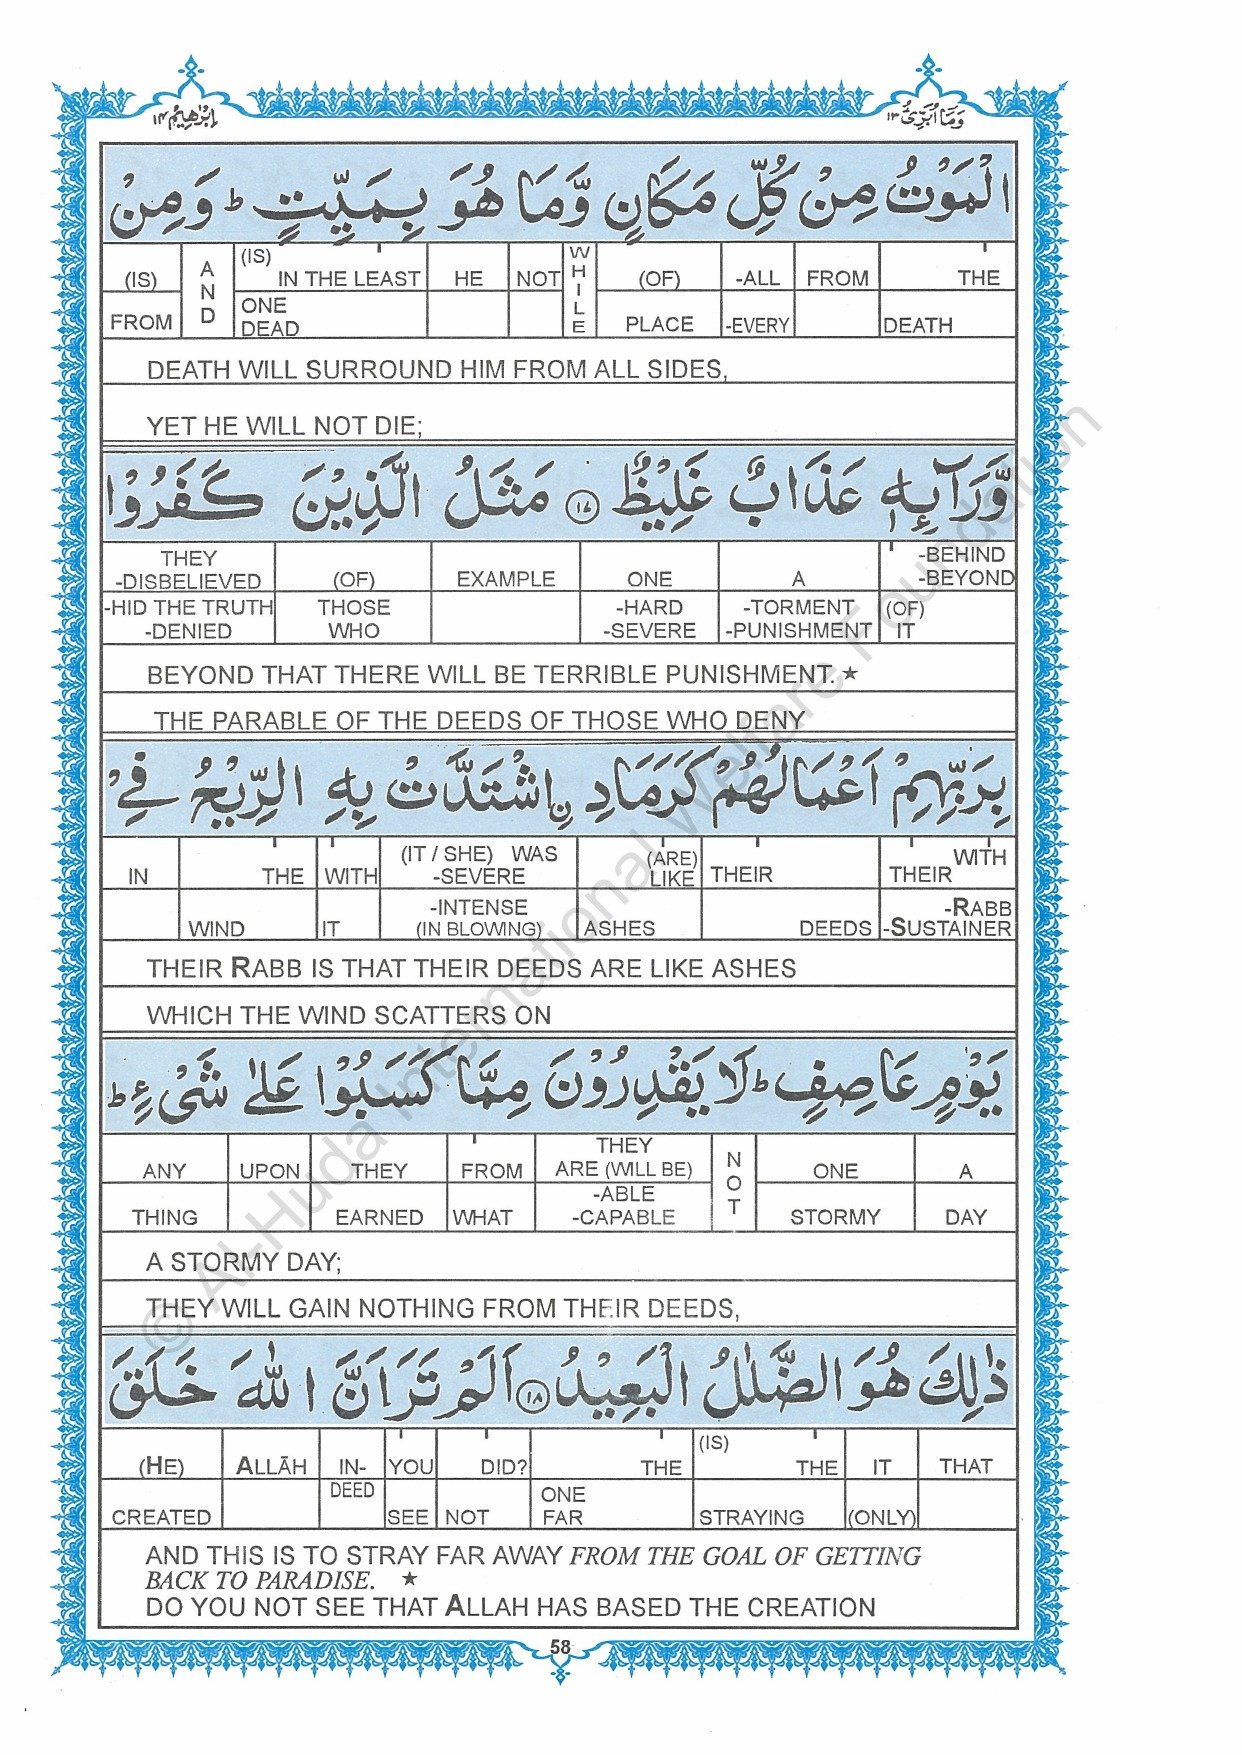 اِبْرٰهِيْمُ ١٤
وَمَا اُبَرِّئُ ١٣
الْمَوْتُ مِنْ كُلِّ مَكَانٍ وَّمَا هُوَ بِمَيِّتٍ ؕ وَمِنْ
(IS) | AND | (IS) IN THE LEAST | HE | NOT | WHILE | (OF) | -ALL | FROM | THE
FROM | ONE DEAD | PLACE | -EVERY | DEATH
DEATH WILL SURROUND HIM FROM ALL SIDES,
YET HE WILL NOT DIE;
وَّرَآىِٕهٖ عَذَابٌ غَلِيْظٌ ١٧ مَثَلُ الَّذِيْنَ كَفَرُوْا
THEY -DISBELIEVED | (OF) | EXAMPLE | ONE | A | -BEHIND -BEYOND
-HID THE TRUTH -DENIED | THOSE WHO | -HARD -SEVERE | -TORMENT -PUNISHMENT | (OF) IT
BEYOND THAT THERE WILL BE TERRIBLE PUNISHMENT. ★
THE PARABLE OF THE DEEDS OF THOSE WHO DENY
بِرَبِّهِمْ اَعْمَالُهُمْ كَرَمَادِ ِۨاشْتَدَّتْ بِهِ الرِّيْحُ فِيْ
IN | THE | WITH | (IT / SHE) WAS -SEVERE | (ARE) LIKE | THEIR | WITH THEIR
WIND | IT | -INTENSE (IN BLOWING) | ASHES | DEEDS | -RABB -SUSTAINER
THEIR RABB IS THAT THEIR DEEDS ARE LIKE ASHES
WHICH THE WIND SCATTERS ON
يَوْمٍ عَاصِفٍ ؕ لَا يَقْدِرُوْنَ مِمَّا كَسَبُوْا عَلٰى شَيْءٍ ؕ
ANY | UPON | THEY | FROM | THEY ARE (WILL BE) | NOT | ONE | A
THING | EARNED | WHAT | -ABLE -CAPABLE | STORMY | DAY
A STORMY DAY;
THEY WILL GAIN NOTHING FROM THEIR DEEDS,
ذٰلِكَ هُوَ الضَّلٰلُ الْبَعِيْدُ ١٨ اَلَمْ تَرَ اَنَّ اللّٰهَ خَلَقَ
(HE) | ALLĀH | IN- | YOU | DID? | THE | (IS) THE | IT | THAT
CREATED | DEED | SEE | NOT | ONE FAR | STRAYING | (ONLY)
AND THIS IS TO STRAY FAR AWAY FROM THE GOAL OF GETTING
BACK TO PARADISE. ★
DO YOU NOT SEE THAT ALLAH HAS BASED THE CREATION
58
© Al-Huda International Welfare Foundation